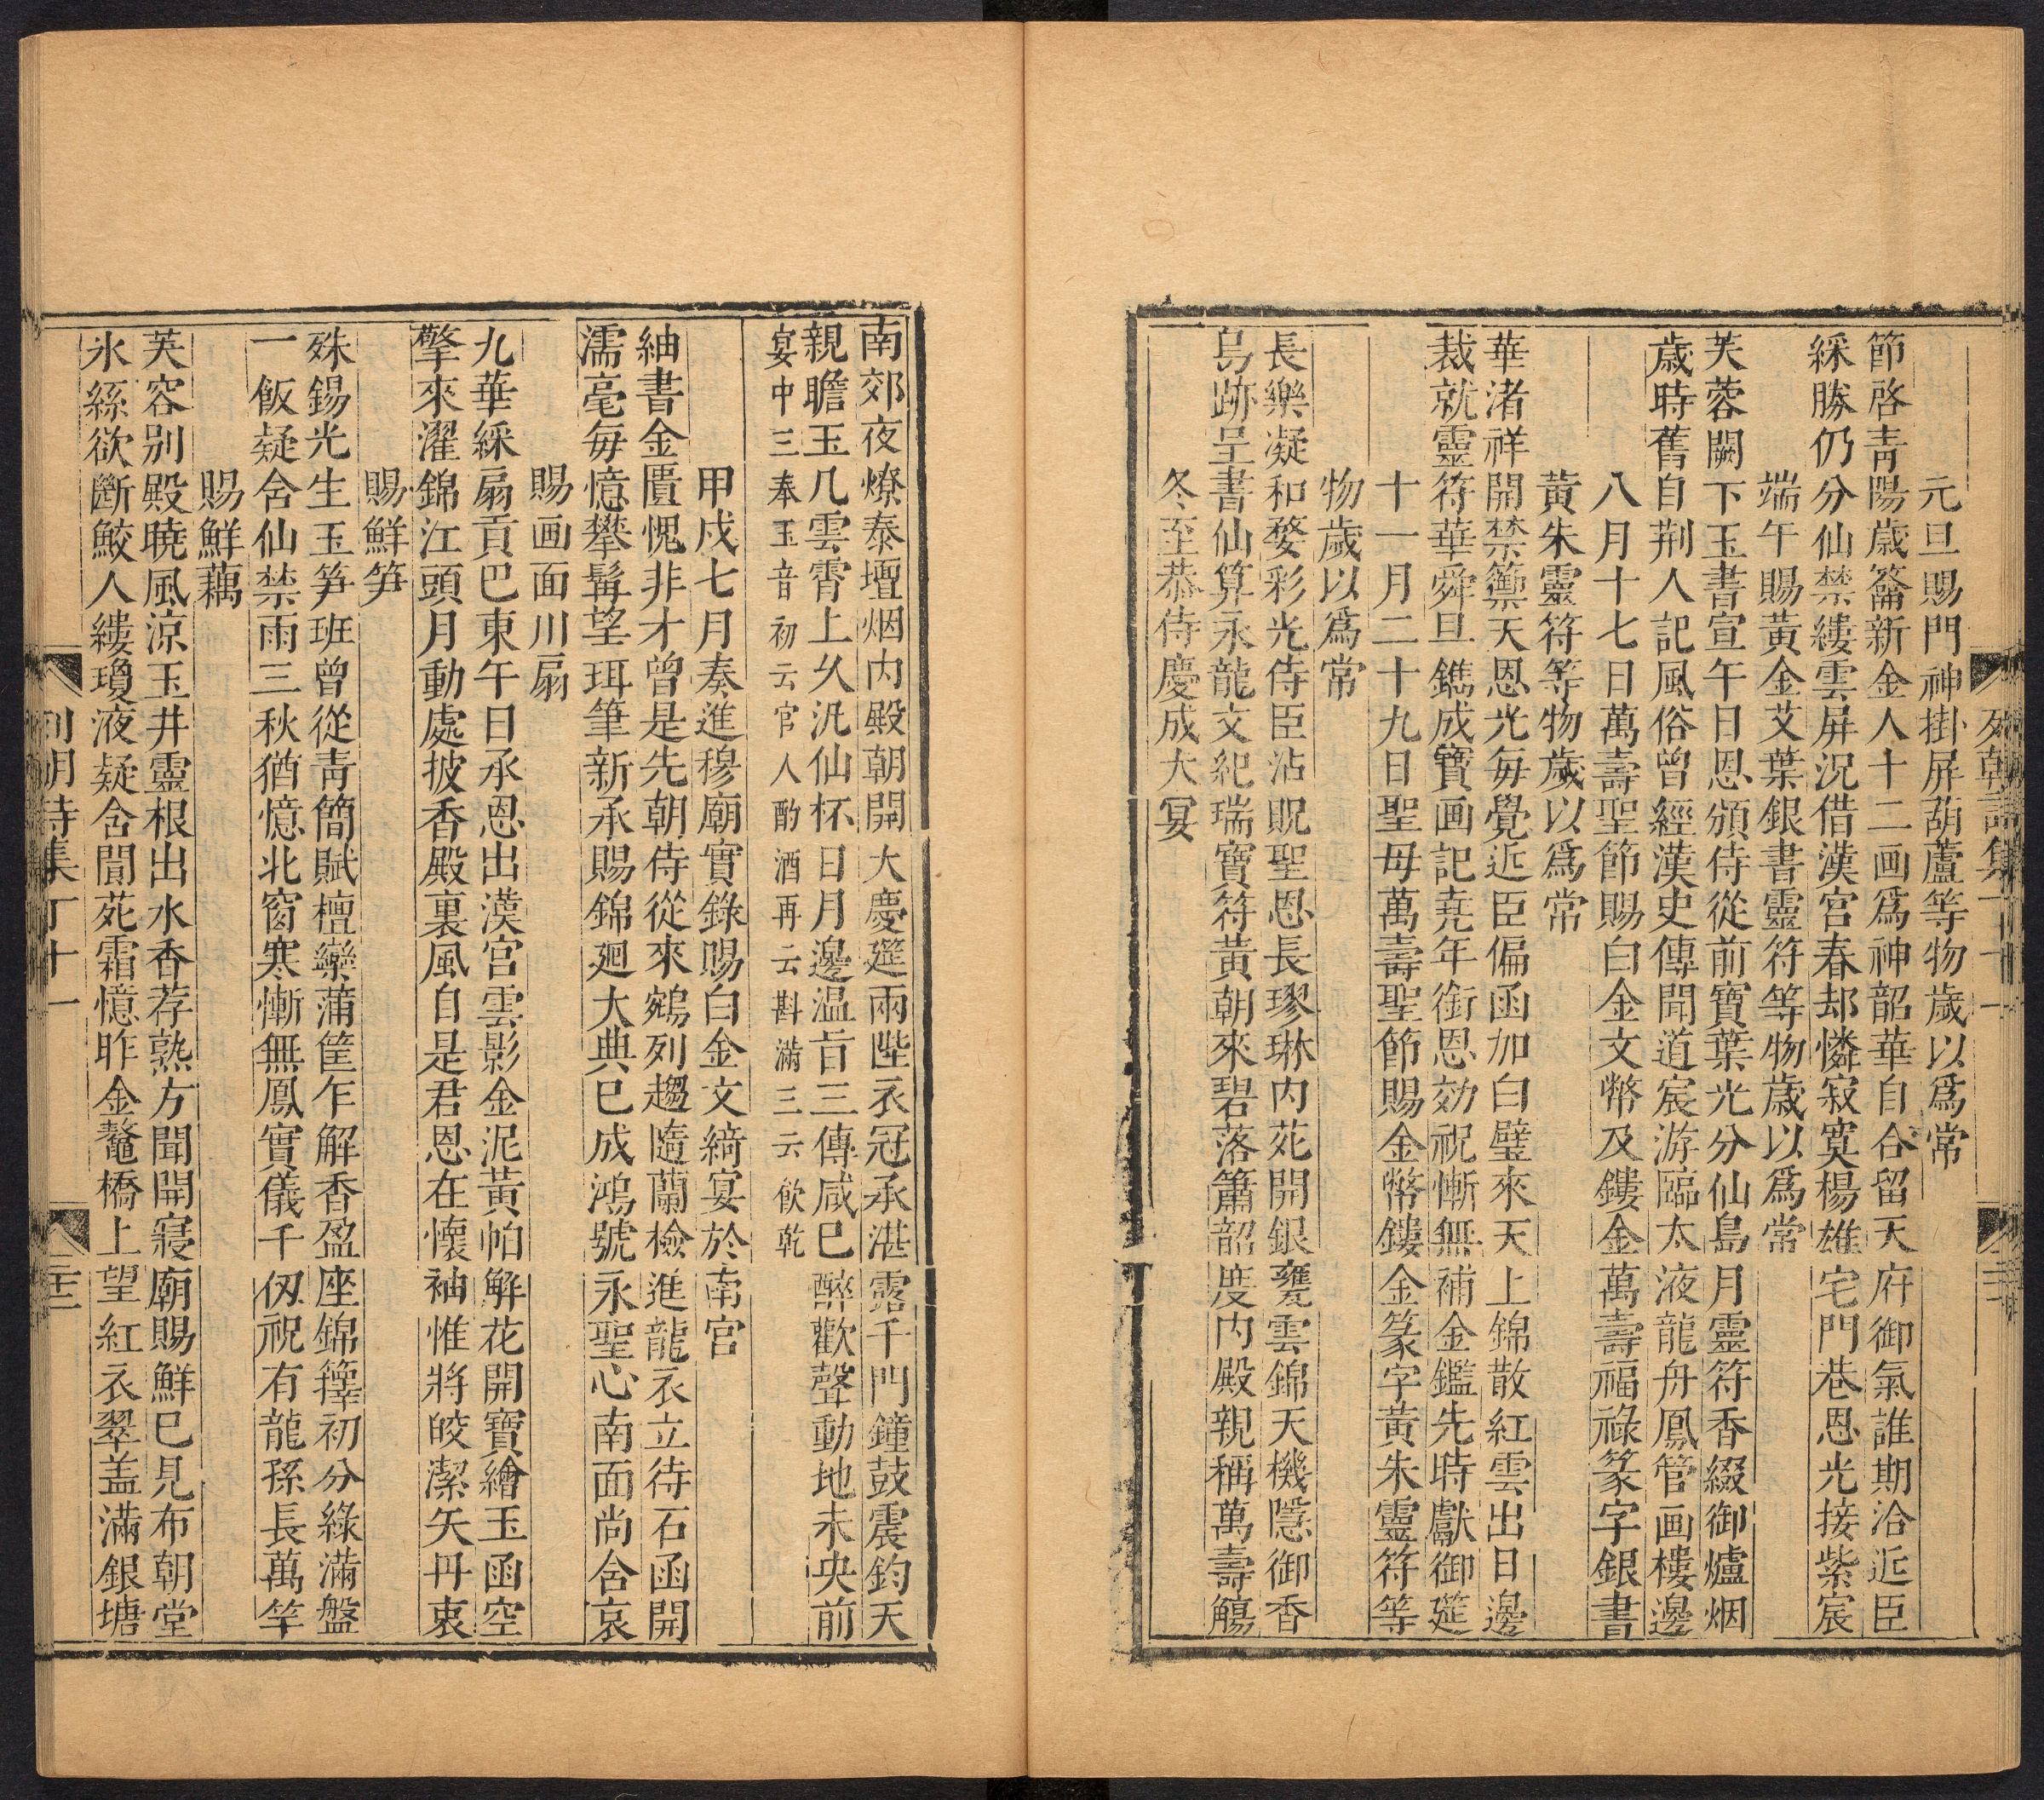 元旦賜門神掛屏葫蘆等物歲以爲常
節啓青陽歲籥新金人十二画爲神韶華自合留天府御氣誰期洽近臣
綵勝仍分仙禁縷雲屏況借漢宮春却憐寂寞楊雄宅門巷恩光接紫宸
端午賜黃金艾葉銀書靈符等物歲以爲常
芙蓉闕下玉書宣午日恩頒侍從前寶葉光分仙島月靈符香綴御爐烟
歲時舊自荆人記風俗曾經漢史傳聞道宸游臨太液龍舟鳳管画樓邊
八月十七日萬壽聖節賜白金文幣及鏤金萬壽福祿篆字銀書
黃朱靈符等物歲以爲常
華渚祥開禁籞天恩光每覺近臣偏函加白璧來天上錦散紅雲出日邊
裁就靈符華舜旦鐫成寶画記堯年銜恩効祝慚無補金鑑先時獻御筵
十一月二十九日聖母萬壽聖節賜金幣鏤金篆字黃朱靈符等
物歲以爲常
長樂凝和婺彩光侍臣沾貺聖恩長璆琳内苑開銀甕雲錦天機隱御香
鳥跡呈書仙算永龍文紀瑞寶符黃朝來碧落簫韶度内殿親稱萬壽觴
冬至恭侍慶成大宴
南郊夜燎泰壇烟内殿朝開大慶筵兩陛衣冠承湛露千門鐘鼓震鈞天
親瞻玉几雲霄上久汎仙杯日月邊温旨三傳咸巳醉歡聲動地未央前
宴中三奉玉音初云官人酌酒再云斟滿三云飲乾
甲戌七月奏進穆廟實錄賜白金文綺宴於南宮
紬書金匱愧非才曾是先朝侍從來鵷列趨隨蘭檢進龍衣立待石函開
濡毫每憶攀髯望珥筆新承賜錦廻大典巳成鴻號永聖心南面尚含哀
賜画面川扇
九華綵扇貢巴東午日承恩出漢宮雲影金泥黃帕解花開寶繪玉函空
擎來濯錦江頭月動處披香殿裏風自是君恩在懷袖惟將皎潔矢丹衷
賜鮮笋
殊錫光生玉笋班曾從靑簡賦檀欒蒲筐乍解香盈座錦籜初分綠滿盤
一飯疑含仙禁雨三秋猶憶北窗寒慚無鳳實儀千仭祝有龍孫長萬竿
賜鮮藕
芙容别殿曉風涼玉井靈根出水香荐熟方聞開寢廟賜鮮巳見布朝堂
氷絲欲斷鮫人縷瓊液疑含閬苑霜憶昨金鼇橋上望紅衣翠盖滿銀塘
列朝詩集丁十一